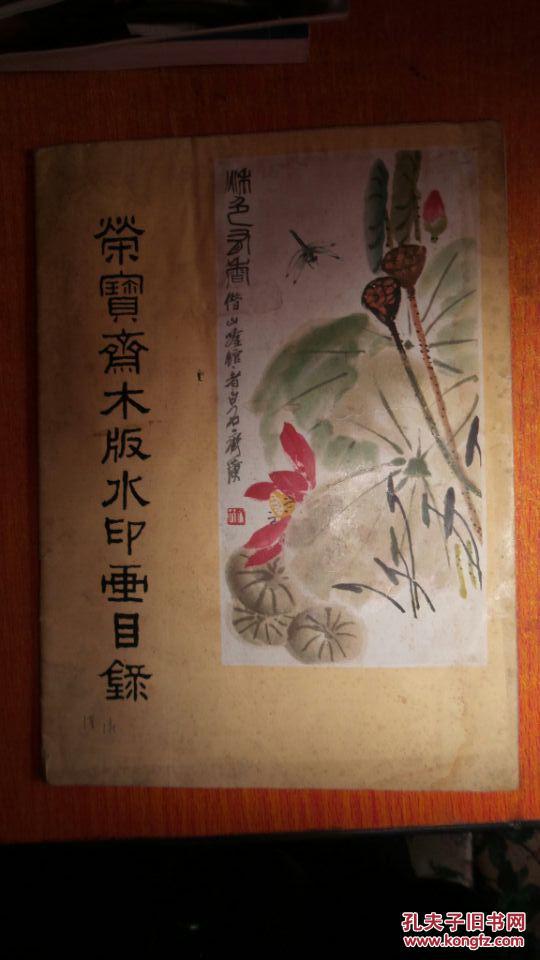 榮寶齋木版水印畫目錄
秋色有香
借山唫館者白石齊璜
孔夫子旧书网
www.kongfz.com